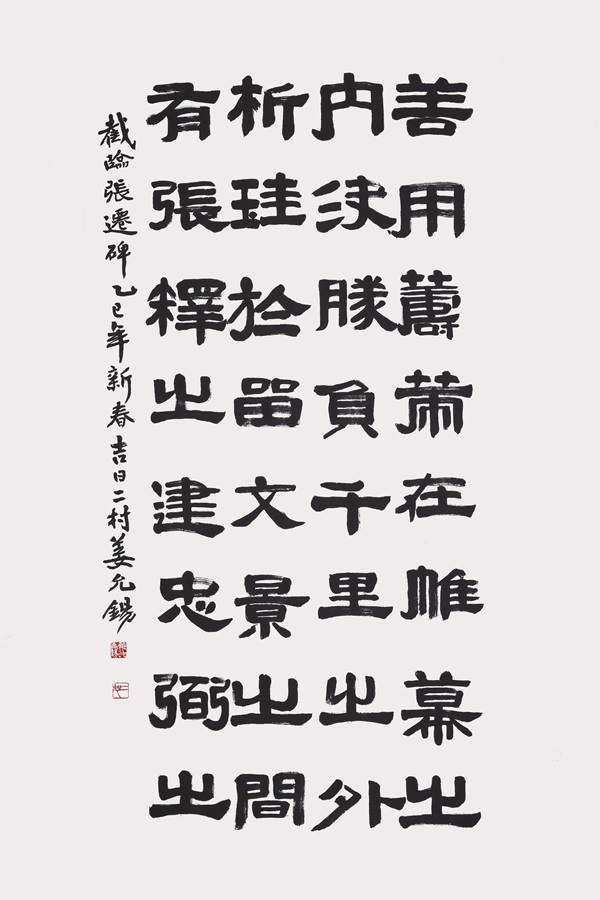 善用籌萗在帷幕之
內決勝負千里之外
析珪於留文景之間
有張釋之建忠弼之
截臨張遷碑乙巳年新春吉日二村姜允錫